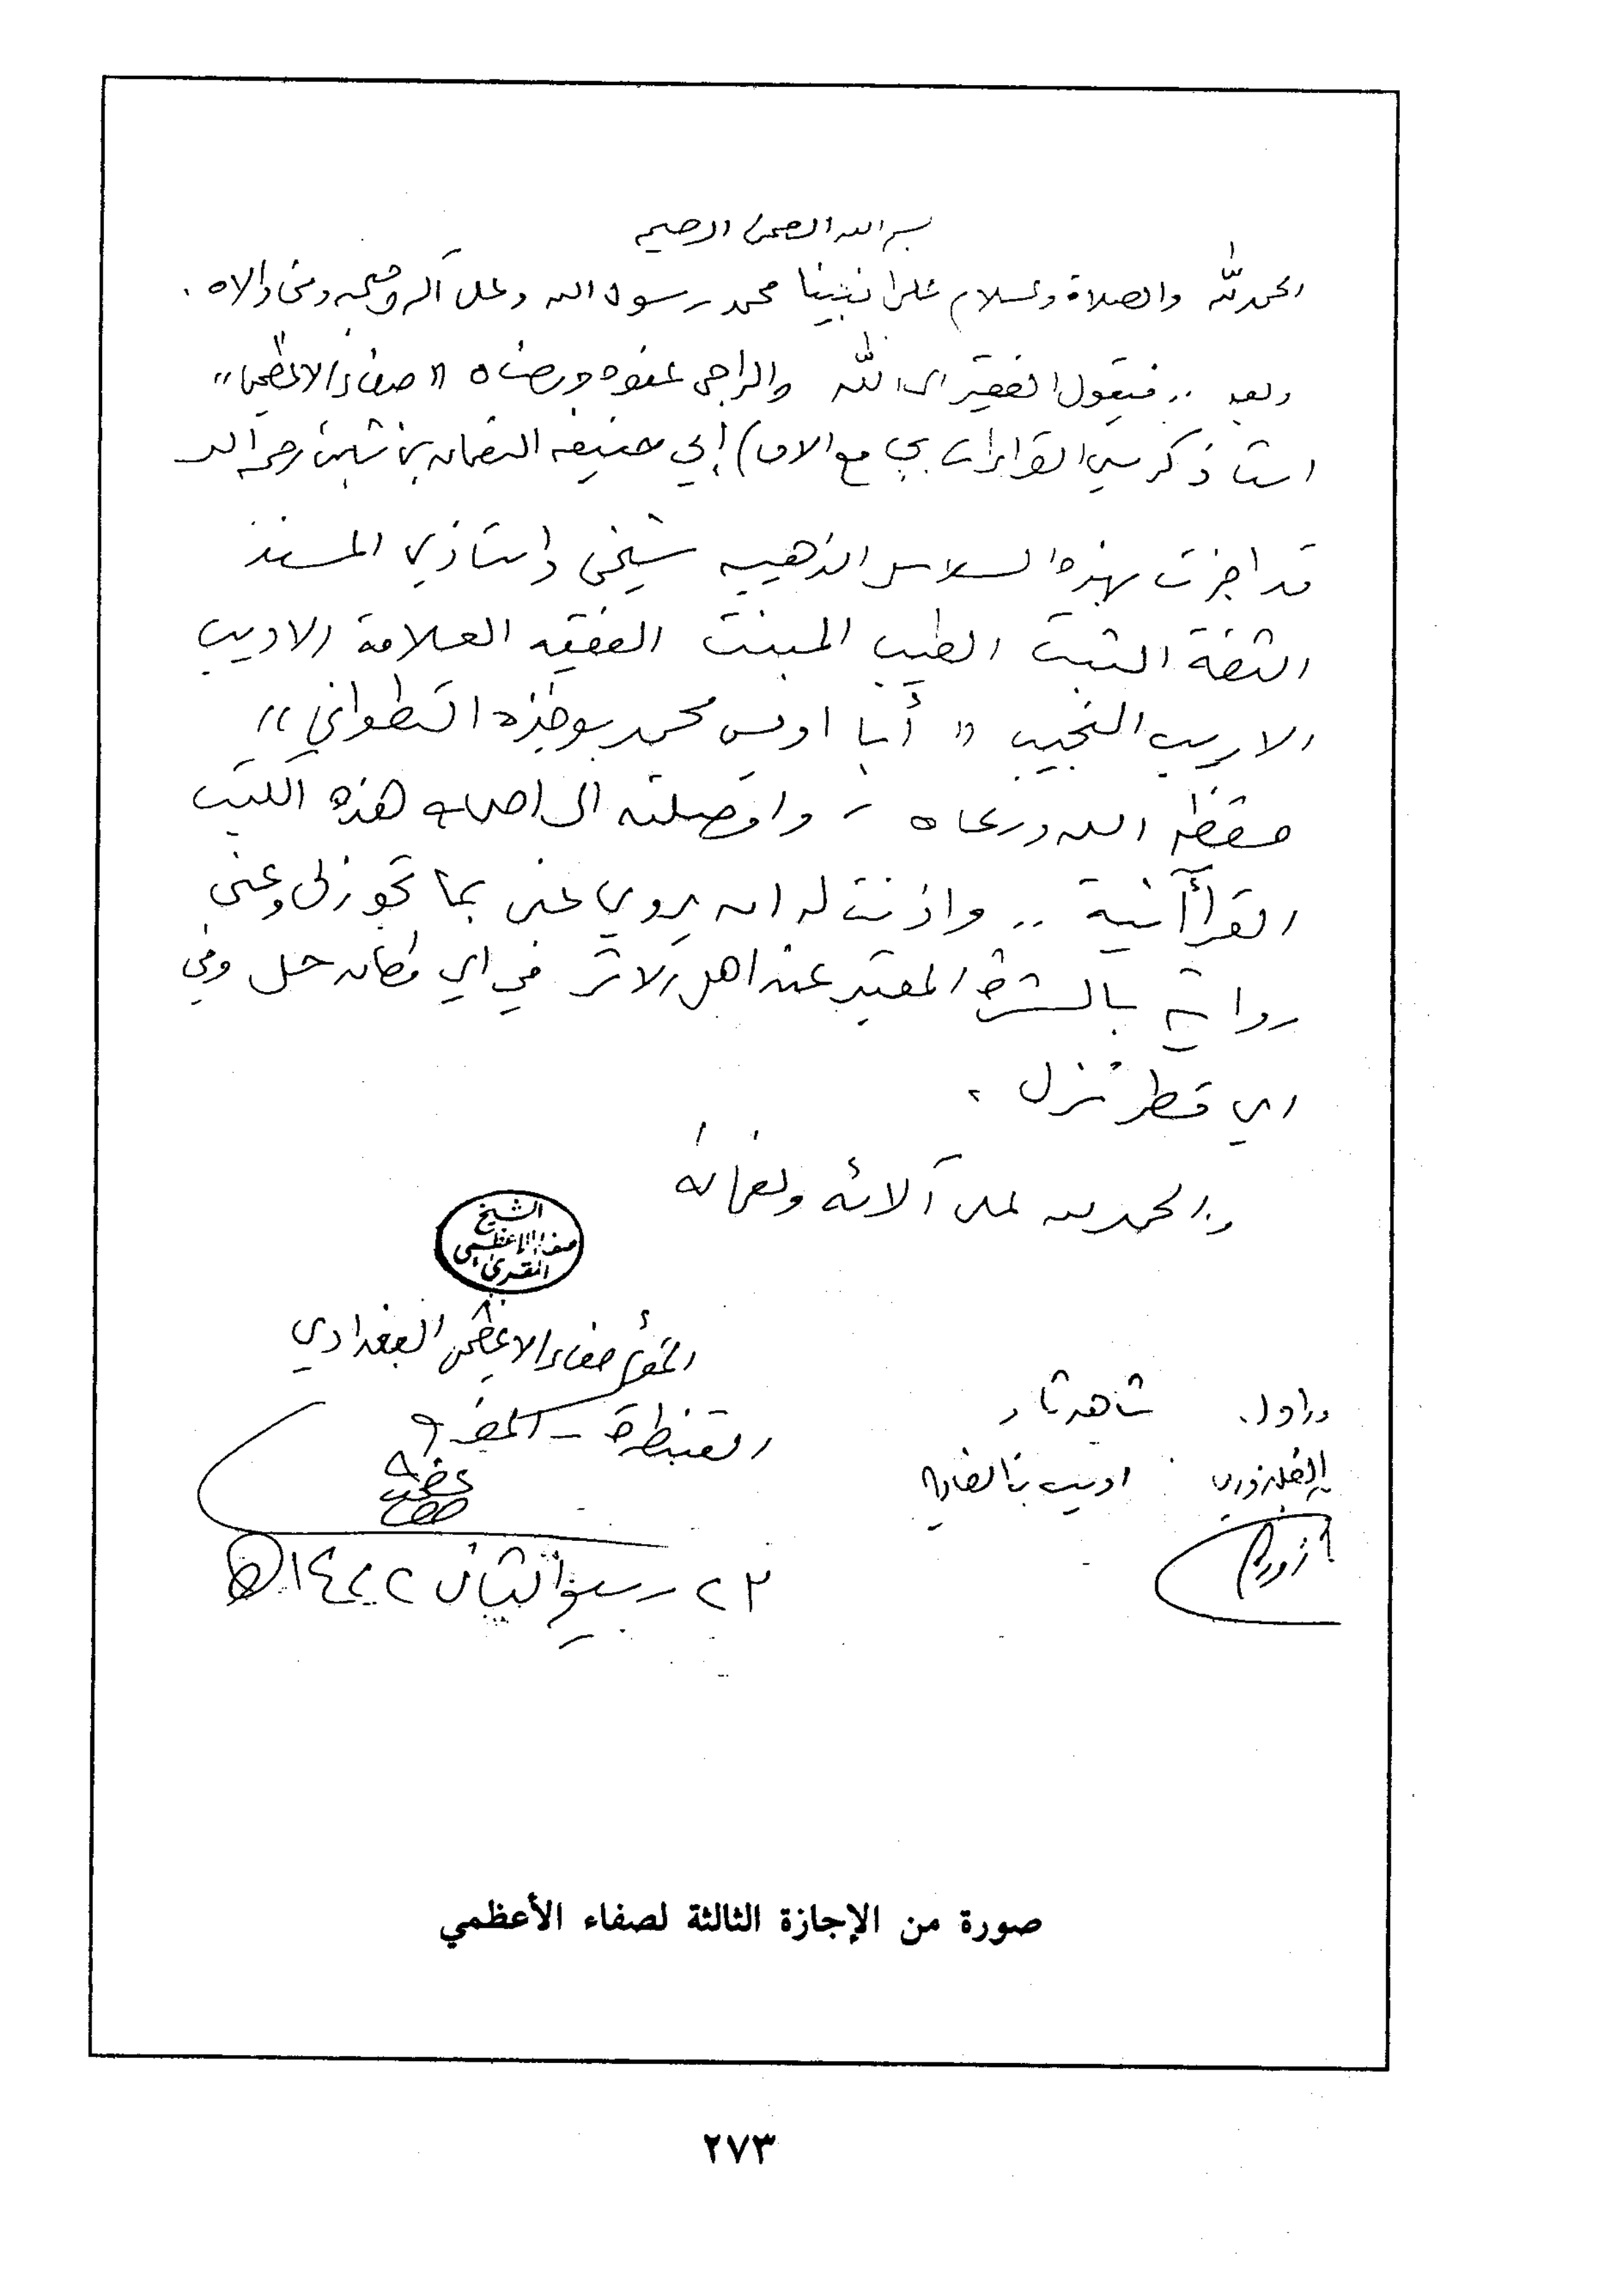 بسم الله الرحمن الرحيم
الحمد لله والصلاة والسلام على نبينا محمد رسول الله وعلى آله وصحبه ومن والاه .
وبعد .. فيقول الفقير الى الله والراجي عفوه ورضاه "صفاء الاعظمي"
استاذ كرسي القراءات بجامع الامام أبي حنيفه النعمان بن ثابت رحمه الله
قد اجزت بهذه السلاسل الذهبيه شيخي واستاذي المسند
الثقة الثبت الطيب المنبت الفقيه العلامة الاديب
الاريب النجيب " أبا اويس محمد بوخبزه التطواني "
حفظه الله ورعاه واوصلته الى اصحاب هذه الكتب
القرأآنية .. واذنت له ان يروي عني بما تجوز لي وعني
روايته بالشرط المعتبر عند اهل الاثر في اي مكان حل وفي
اي قطر نزل .
والحمد لله على آلائه ونعمائه
الشيخ
صفاء الاعظمي
المقرئ
المقرئ صفاء الاعظمي البغدادي
القنيطرة - المغرب
شاهد ثان
٢٣ ربيع الثاني ١٤٢٢ هـ
صورة من الإجازة الثالثة لصفاء الأعظمي
٢٧٣